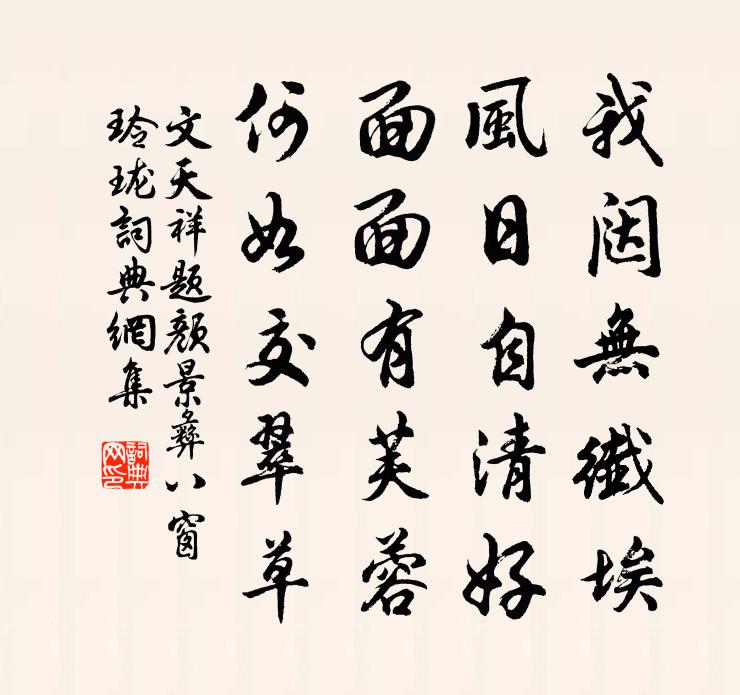 我闼無纖埃
風日自清好
面面有芙蓉
何如交翠草
文天祥题顔景彝八窗
玲瓏詞典網集
詞典
网印